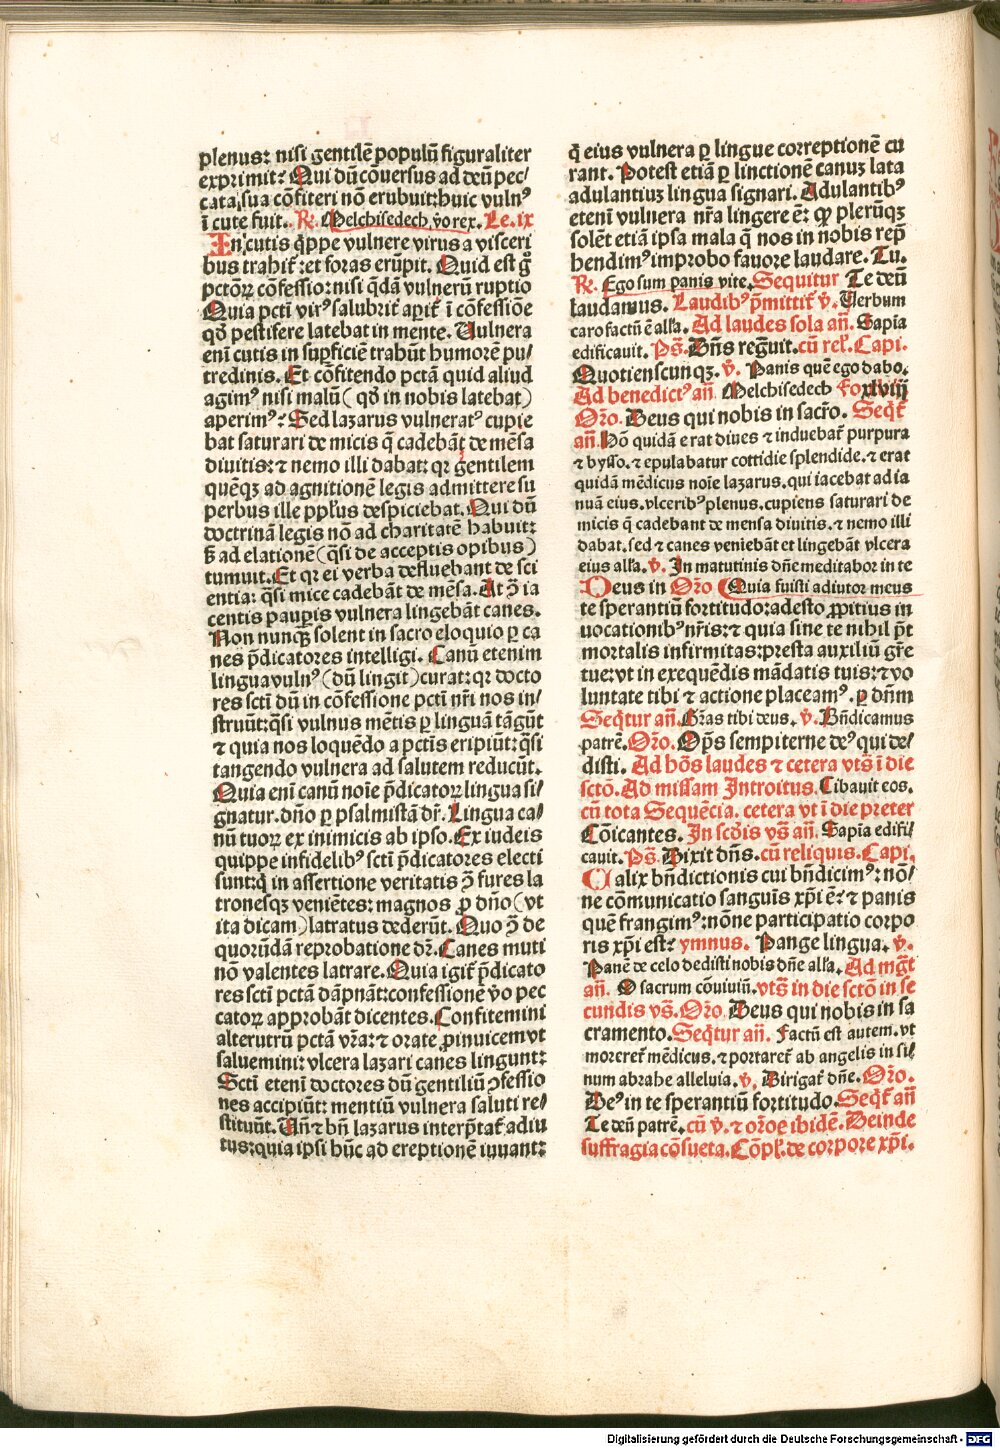 plenus: nisi gentilē populū figuraliter
exprimit? Qui dū cōuersus ad deū pec/
cata sua cōfiteri nō erubuit: huic vulnꝰ
ī cute fuit. R̄. Melchisedech v̄o rex. Le. ix
In cutis q̄ppe vulnere virus a visceri
bus trahit̄: et foras erūpit. Quid est g̊
pctōꝝ cōfessio: nisi q̄dā vulnerū ruptio
Quia pctī virꝰ salubrit̄ apit̄ ī cōfessiōe
qḋ pestifere latebat in mente. Vulnera
eni cutis in supficiē trahūt humorē pu/
tredinis. Et cōfitendo pctā quid aliud
agimꝰ nisi malū (qḋ in nobis latebat)
aperimꝰ? Sed lazarus vulneratꝰ cupie
bat saturari de micis q̄ cadebāt de mēsa
diuitis: ⁊ nemo illi dabat: qꝛ gentilem
quēqꝫ ad agnitionē legis admittere su
perbus ille pplūs despiciebat. Qui dū
doctrinā legis nō ad charitatē habuit:
s̄ ad elationē (q̄si de acceptis opibus)
tumuit. Et qꝛ ei verba defluebant de sci
entia: q̄si mice cadebāt de mēsa. At ꝯ̄ ia
centis paupis vulnera lingebāt canes.
Non nunq̄ꝫ solent in sacro eloquio p ca
nes p̄dicatores intelligi. Canū etenim
lingua vulnꝰ (dū lingit) curat: qꝛ docto
res sctī dū in cōfessione pctī nr̄i nos in/
struūt: q̄si vulnus mētis p linguā tāgūt
⁊ quia nos loquēdo a pctīs eripiūt: q̄si
tangendo vulnera ad salutem reducūt.
Quia eni canū noīe p̄dicatoꝝ lingua si/
gnatur. dn̄o p psalmistā dr̄. Lingua ca/
nū tuoꝝ ex inimicis ab ipso. Ex iudeis
quippe infidelibꝰ sctī p̄dicatores electi
sunt: q̇ in assertione veritatis ꝯ̄ fures la
tronesqꝫ veniētes: magnos p dn̄o (vt
ita dicam) latratus dederūt. Quo ꝯ̄ de
quorūdā reprobatione dr̄. Canes muti
nō valentes latrare. Quia igit̄ p̄dicato
res sctī pctā dāpnāt: confessionē v̄o pec
catoꝝ approbāt dicentes. Confitemini
alterutrū pctā vr̄a: ⁊ orate pinuicem vt
saluemini: vlcera lazari canes lingunt:
Sctī eteni doctores dū gentiliū ꝯfessio
nes accipiūt: mentiū vulnera saluti re/
stituūt. Vn̄ ⁊ bn̄ lazarus interp̄tat̄ adiu
tus: quia ipsi hūc ad ereptionē iuuant:
q̄ eius vulnera p lingue correptionē cu
rant. Potest etiā p linctionē canuꝫ lata
adulantiuꝫ lingua signari. Adulantibꝰ
eteni vulnera nr̄a lingere ē: qꝫ plerūqꝫ
solēt etiā ipsa mala q̄ nos in nobis rep̄
hendimꝰ improbo fauore laudare. Tu.
R̄. Ego sum panis vite. Sequitur Te deū
laudamus. Laudibꝰ p̄mittit̄ v̄. Uerbum
caro factū ē alla. Ad laudes sola an̄. Sapīa
edificauit. Ps̄. Dn̄s regn̄uit. cū rel̄. Capi.
Quotienscunqꝫ. v̄. Panis quē ego dabo.
Ad benedictꝰ an̄ Melchisedech fo xlviij
Or̄o. Deus qui nobis in sacr̄o. Seqt̄
an̄. Hō quidā erat diues ⁊ induebat̄ purpura
⁊ bysso. ⁊ epulabatur cottidie splendide. ⁊ erat
quidā mēdicus noīe lazarus. qui iacebat ad ia
nuā eius. vlceribꝰ plenus. cupiens saturari de
micis q̄ cadebant de mensa diuitis. ⁊ nemo illi
dabat. sed ⁊ canes veniebāt et lingebāt vlcera
eius alla. v̄. In matutinis dn̄e meditabor in te
Deus in Or̄o Quia fuisti adiutor meus
te sperantiū fortitudo: adesto ppitius in
uocationibꝰ nr̄is: ⁊ quia sine te nihil p̄t
mortalis infirmitas: presta auxiliū gr̄e
tue: vt in exequēdis mādatis tuis: ⁊ vo
luntate tibi ⁊ actione placeamꝰ. p dn̄m
Seq̄tur an̄. Gr̄as tibi deus. v̄. Bn̄dicamus
patrē. Or̄o. Op̄s sempiterne deꝰ qui de/
disti. Ad hōs laudes ⁊ cetera vts̄ ī die
sctō. Ad missam Introitus. Cibauit eos.
cū tota Sequēcia. cetera vt ī die preter
Cōicantes. In scd̄is vs̄ an̄. Sapīa edifi/
cauit. Ps̄. Dixit dn̄s. cū reliquis. Capi.
Calix bn̄dictionis cui bn̄dicimꝰ: nō/
ne cōmunicatio sanguīs xp̄i ē: ⁊ panis
quē frangimꝰ: nōne participatio corpo
ris xp̄i est? ymnus. Pange lingua. v̄.
Panē de celo dedisti nobis dn̄e alla. Ad mḡt
an̄. O sacrum cōuiuiū. vts̄ in die sctō in se
cundis vs̄. Or̄o Deus qui nobis in sa
cramento. Seq̄tur an̄. Factū est autem. vt
moreret̄ mēdicus. ⁊ portaret̄ ab angelis in si/
num abrahe alleluia. v̄. Dirigat̄ dn̄e. Or̄o.
Deꝰ in te sperantiū fortitudo. Seqt̄ an̄
Te deū patrē. cū v̄. ⁊ or̄oe ibidē. Deinde
suffragia cōsueta. Cōpl̄. de corpore xp̄i.
Digitalisierung gefördert durch die Deutsche Forschungsgemeinschaft - DFG